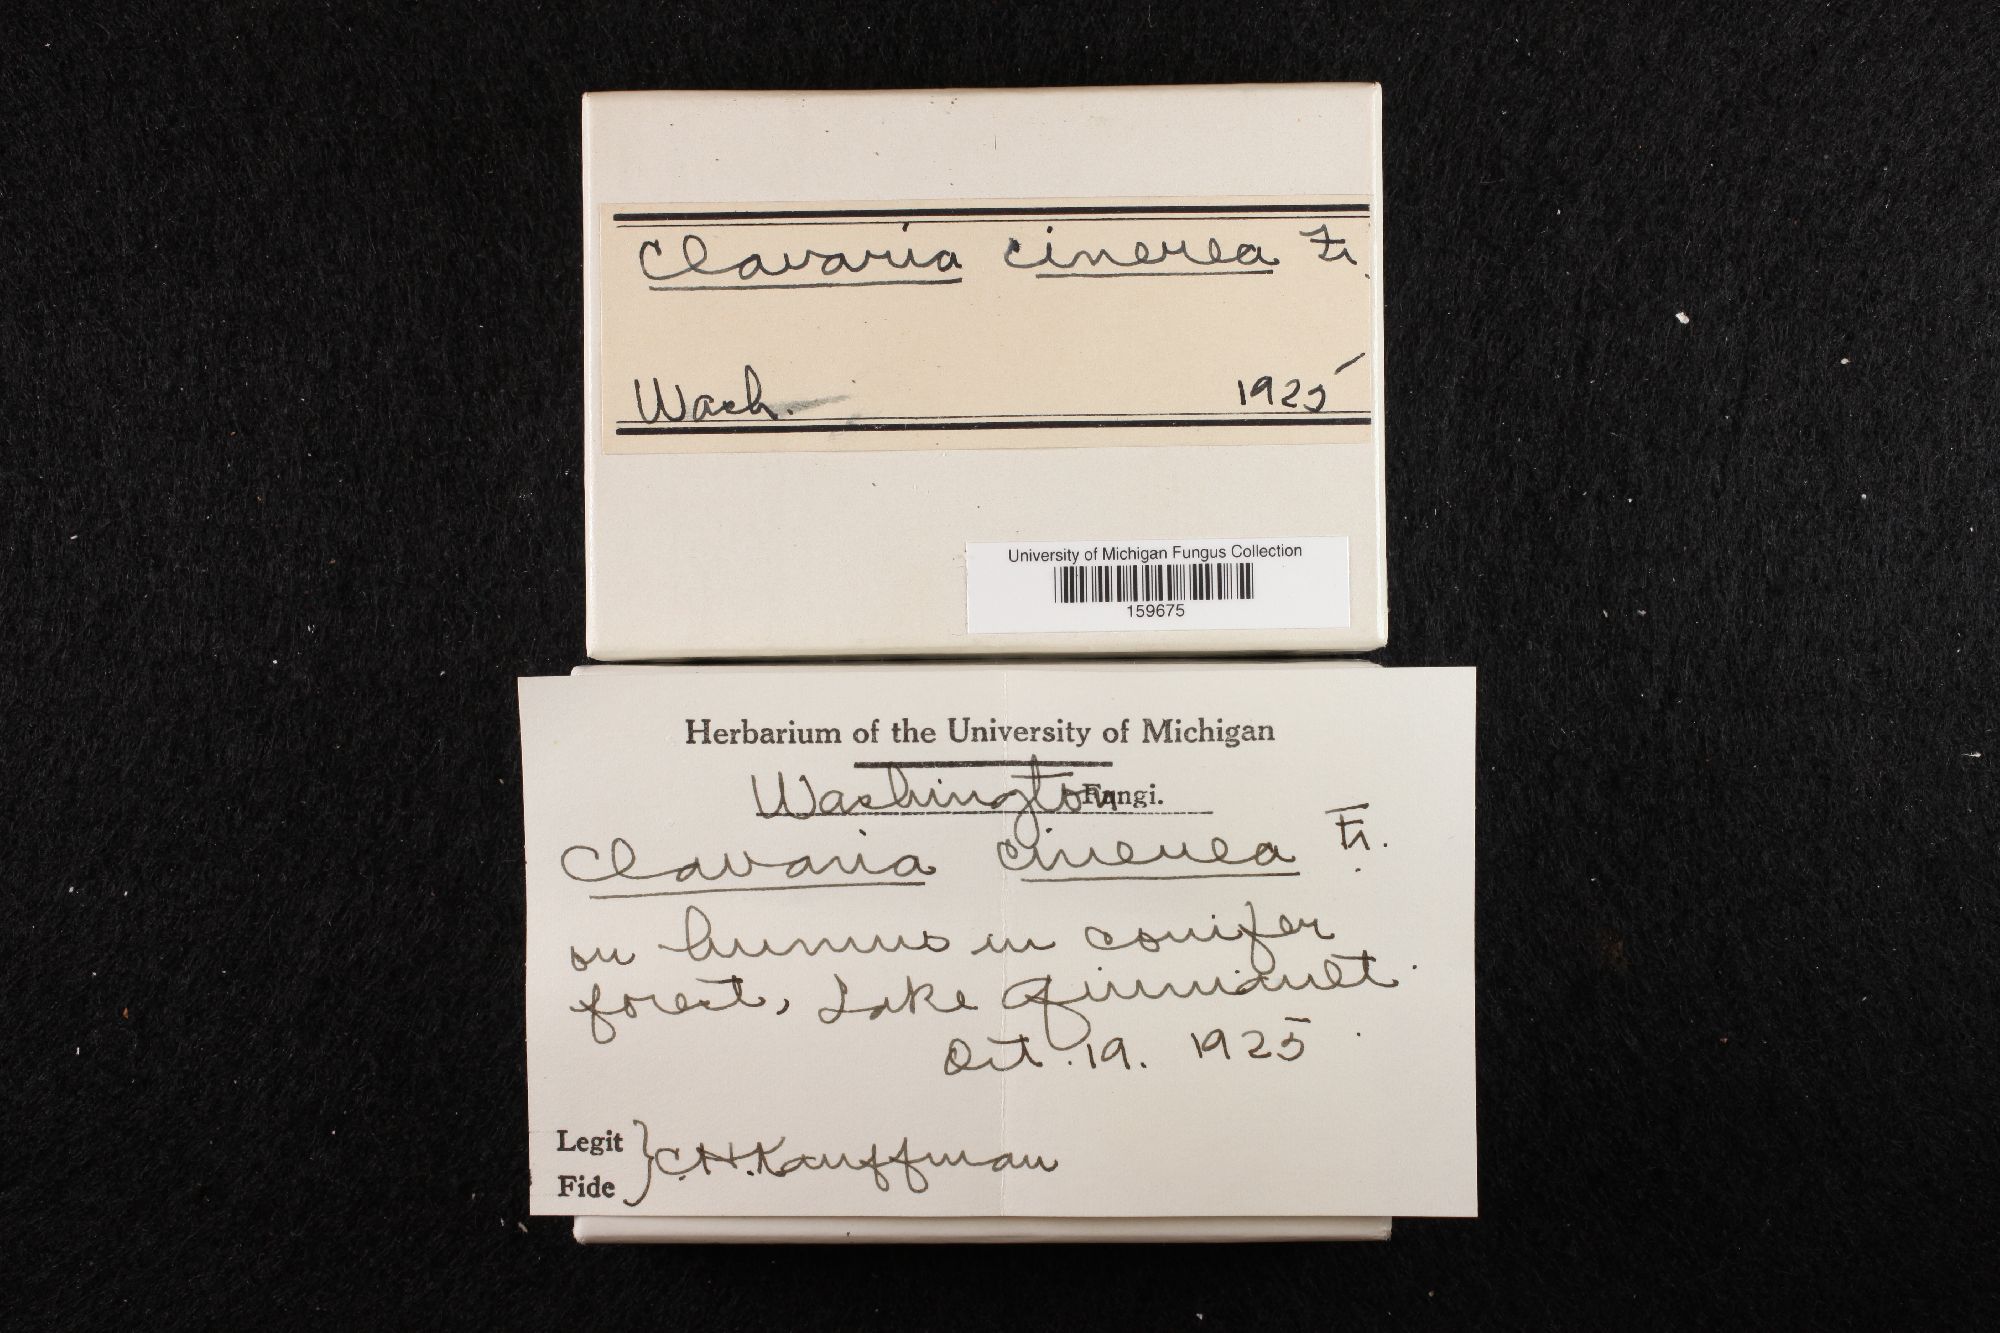 Clavaria cinerea Fr.
Wash. 1925
University of Michigan Fungus Collection
159675
Herbarium of the University of Michigan
Washington Fungi.
Clavaria cinerea Fr.
on humus in conifer
forest, Lake Quiniault
Oct. 19. 1925
Legit
Fide } C.H. Kauffman